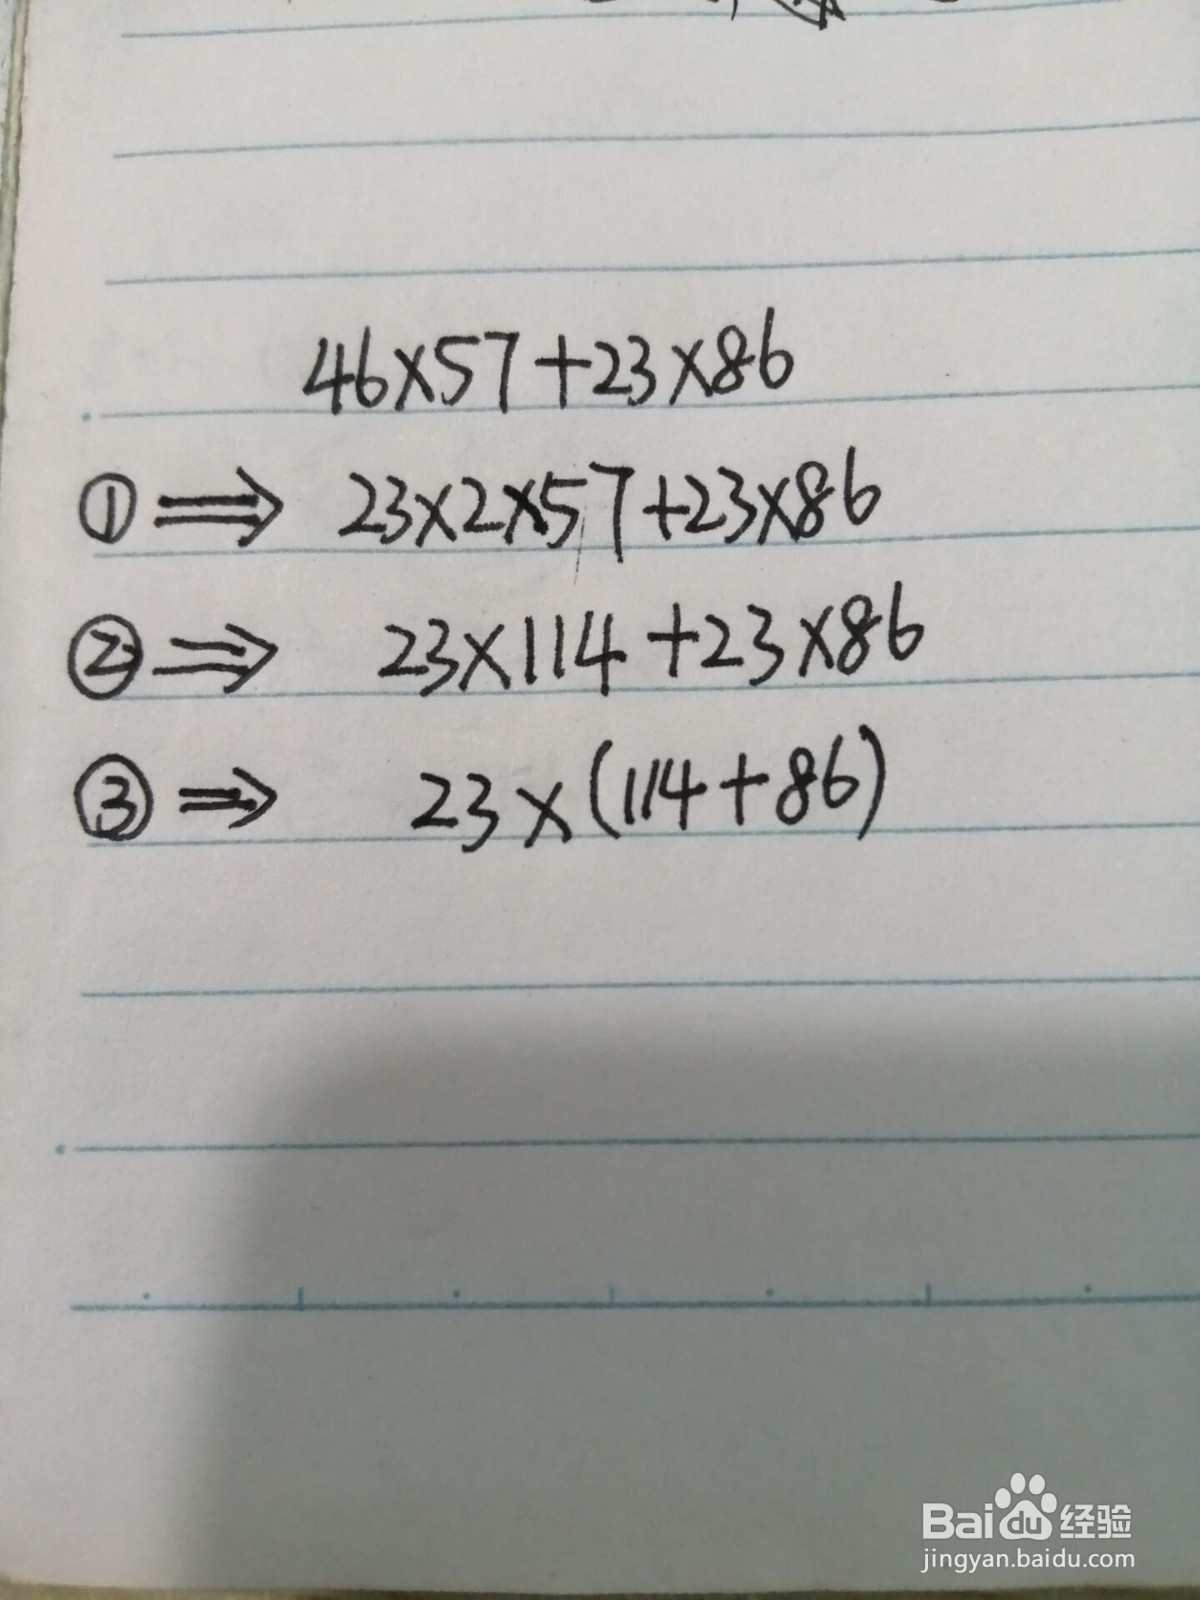 46×57+23×86
① ⇒ 23×2×57+23×86
② ⇒ 23×114+23×86
③ ⇒ 23×(114+86)
Baidu经验
jingyan.baidu.com